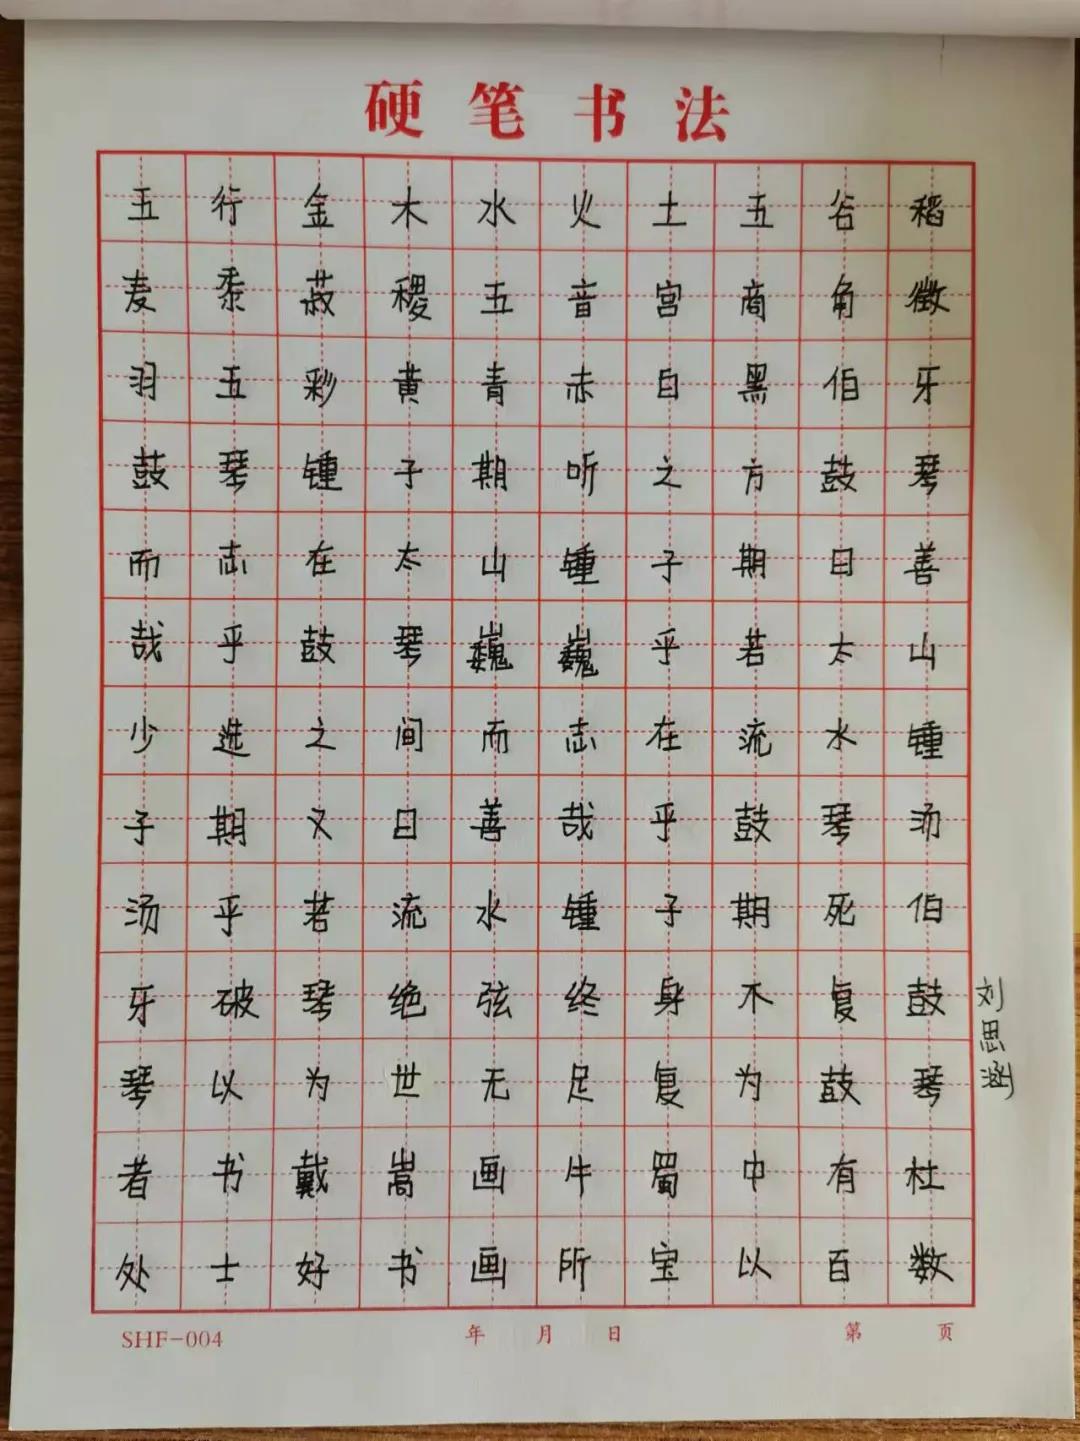 硬笔书法
五行金木水火土五谷稻
麦黍菽稷五音宫商角徵
羽五彩黄青赤白黑伯牙
鼓琴锺子期听之方鼓琴
而志在太山锺子期曰善
哉乎鼓琴巍巍乎若太山
少选之间而志在流水锺
子期又曰善哉乎鼓琴汤
汤乎若流水锺子期死伯
牙破琴绝弦终身不复鼓
琴以为世无足复为鼓琴
者书戴嵩画牛蜀中有杜
处士好书画所宝以百数
刘思涵
SHF-004 年 月 日 第 页